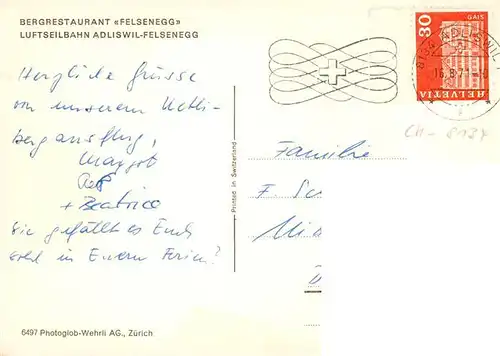 BERGRESTAURANT «FELSENEGG»
LUFTSEILBAHN ADLISWIL-FELSENEGG
Herzliche Grüsse
von unserem Uetli-
bergausflug,
Margot
+ Beatrice
Wie gefällt es Euch
wohl in Euern Ferien?
6497 Photoglob-Wehrli AG., Zürich
Printed in Switzerland
30
GAIS
HELVETIA
8134 ADLISWIL
16.8.71
CH - 8134
Familie
F. Sc